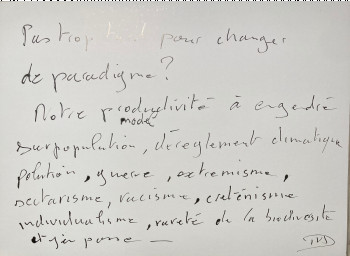 Pas trop tard pour changer
de paradigme?
Notre productivité à engendré
mode
surpopulation, déreglement climatique
polution, guerre, extremisme,
sectarisme, racisme, creténisme
individualisme, rareté de la biodiversité
et j'en passe —